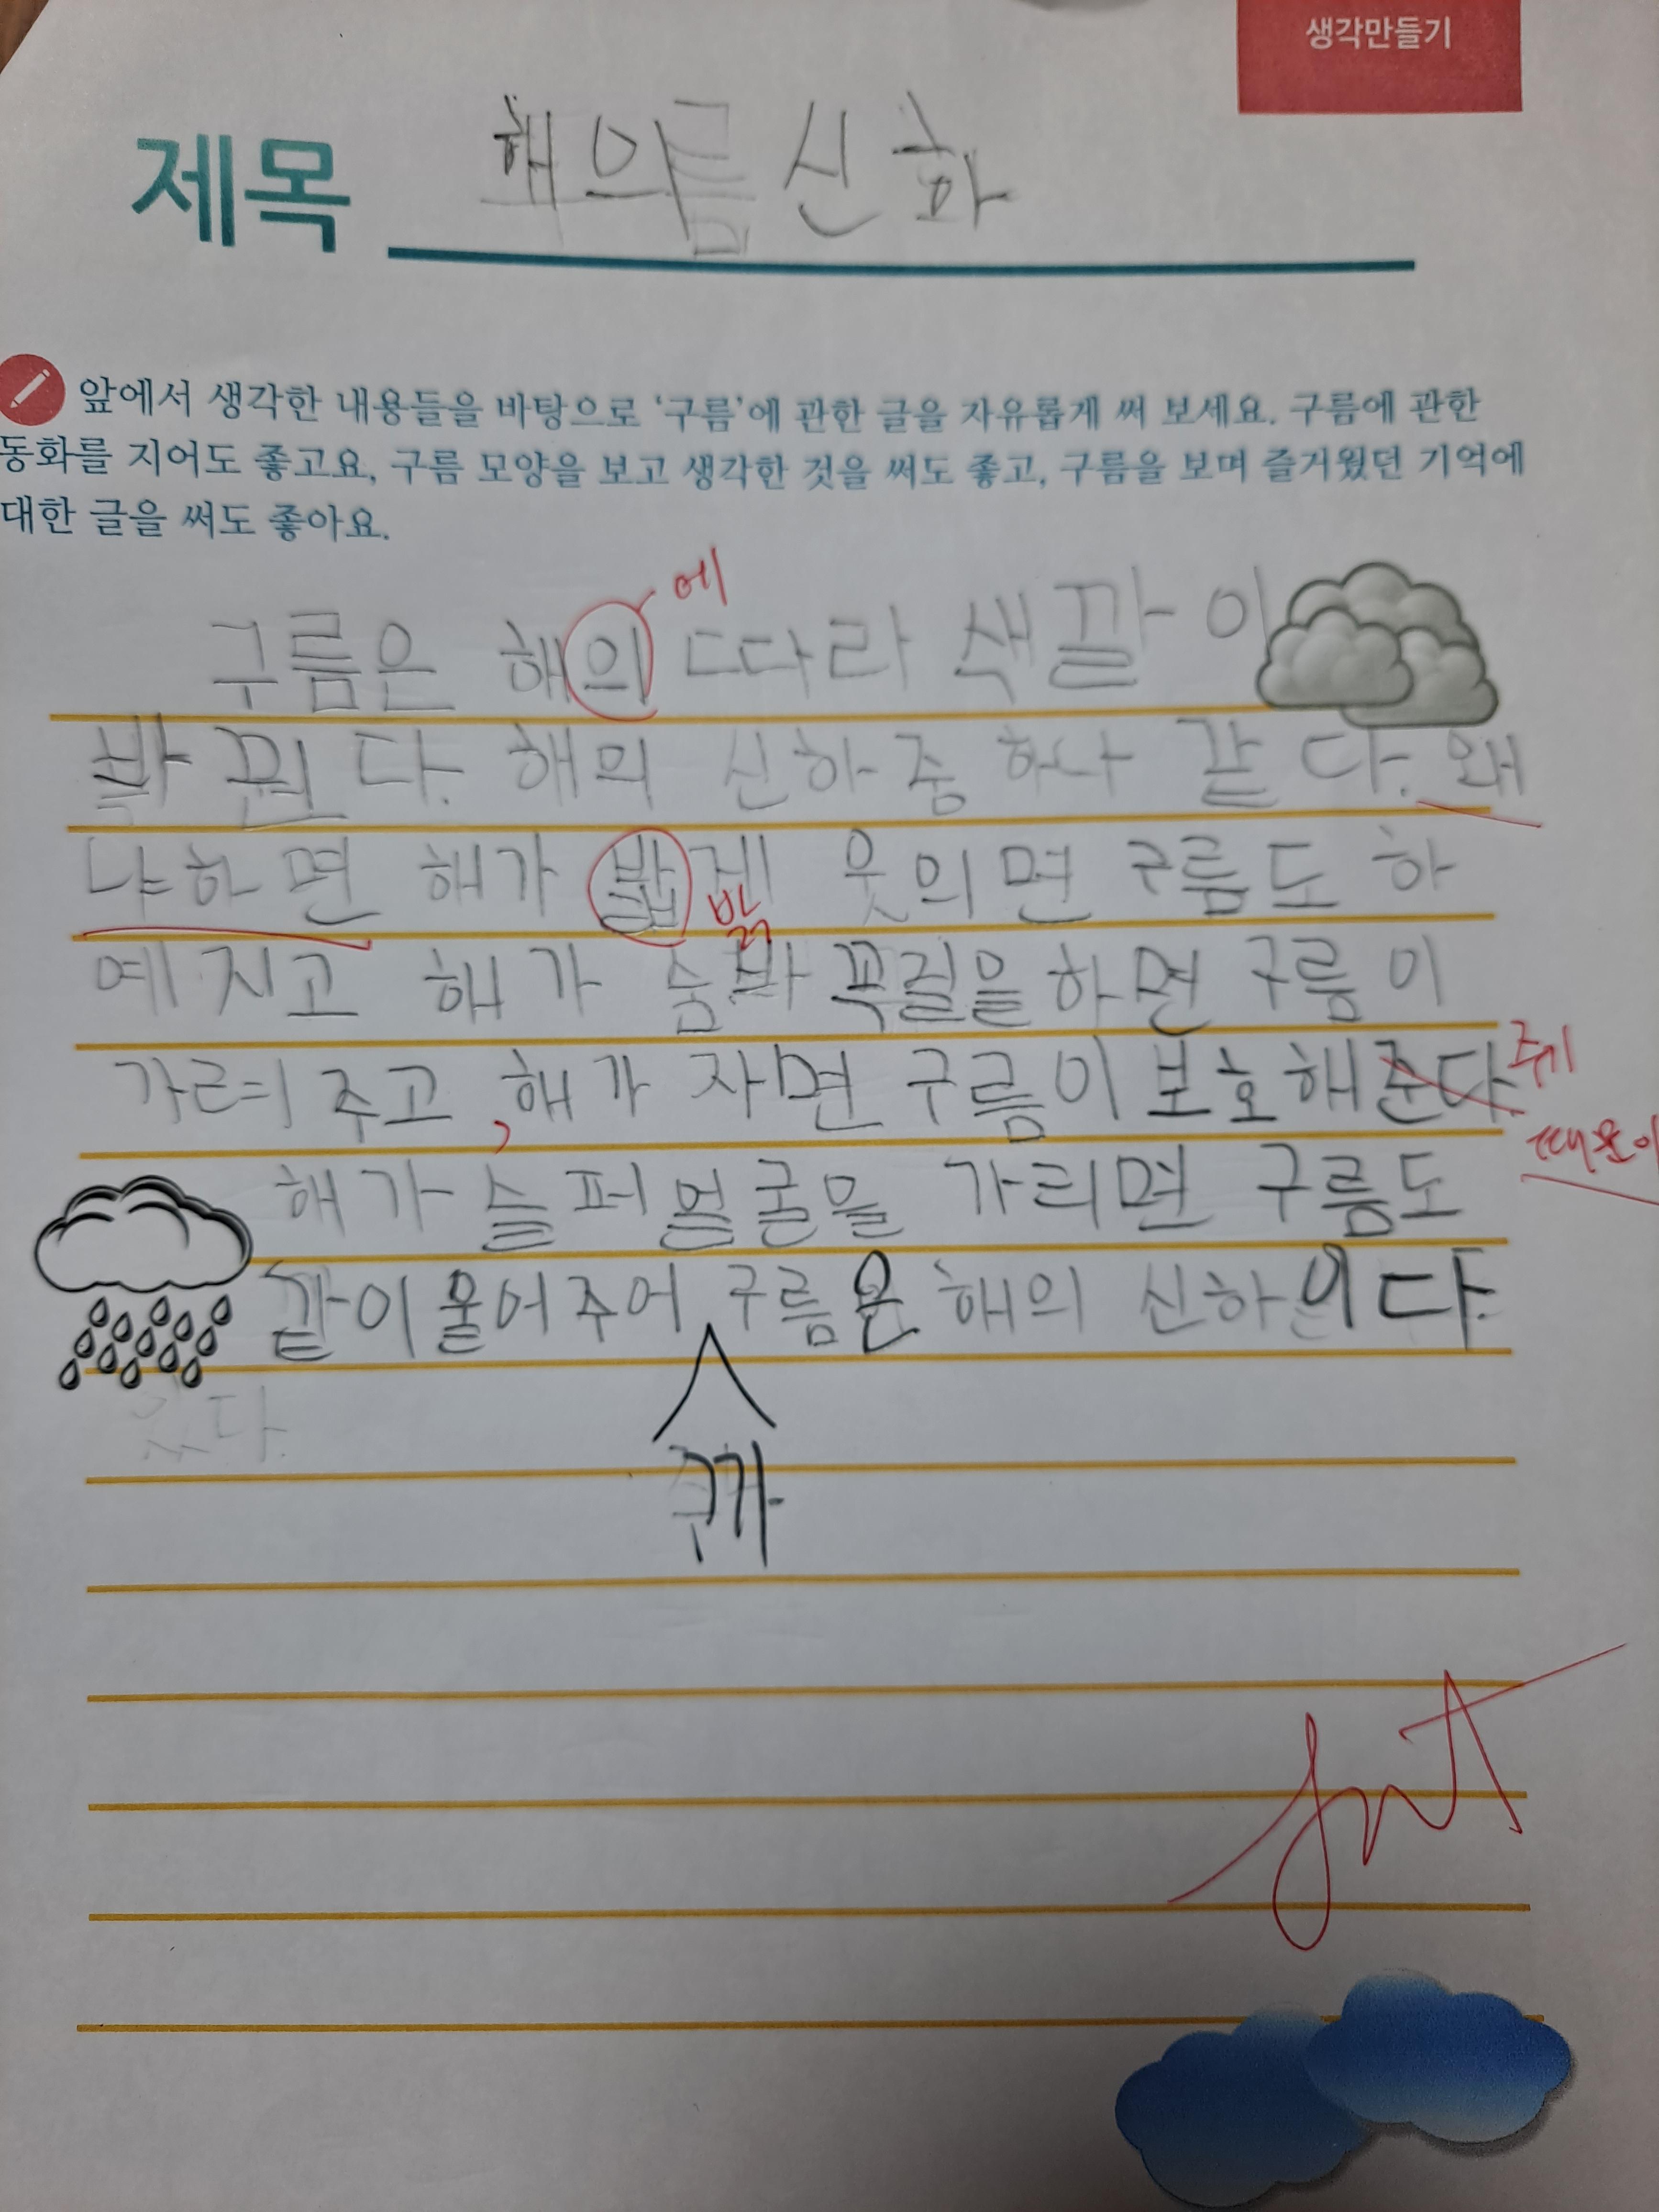 생각만들기
제목 해의 신화
앞에서 생각한 내용들을 바탕으로 '구름'에 관한 글을 자유롭게 써 보세요. 구름에 관한
동화를 지어도 좋고요, 구름 모양을 보고 생각한 것을 써도 좋고, 구름을 보며 즐거웠던 기억에
대한 글을 써도 좋아요.
에
구름은 해의 따라 색깔이
바뀐다. 해의 신하 중 하나 같다. 왜
냐하면 해가 밟게 웃의면 구름도 하
밝
예지고 해가 숨바꼭질을 하면 구름이
가려주고, 해가 자면 구름이 보호해준다. 주기
때문이
해가 슬퍼 얼굴을 가리면 구름도
같이 울어주어 구름은 해의 신하이다.